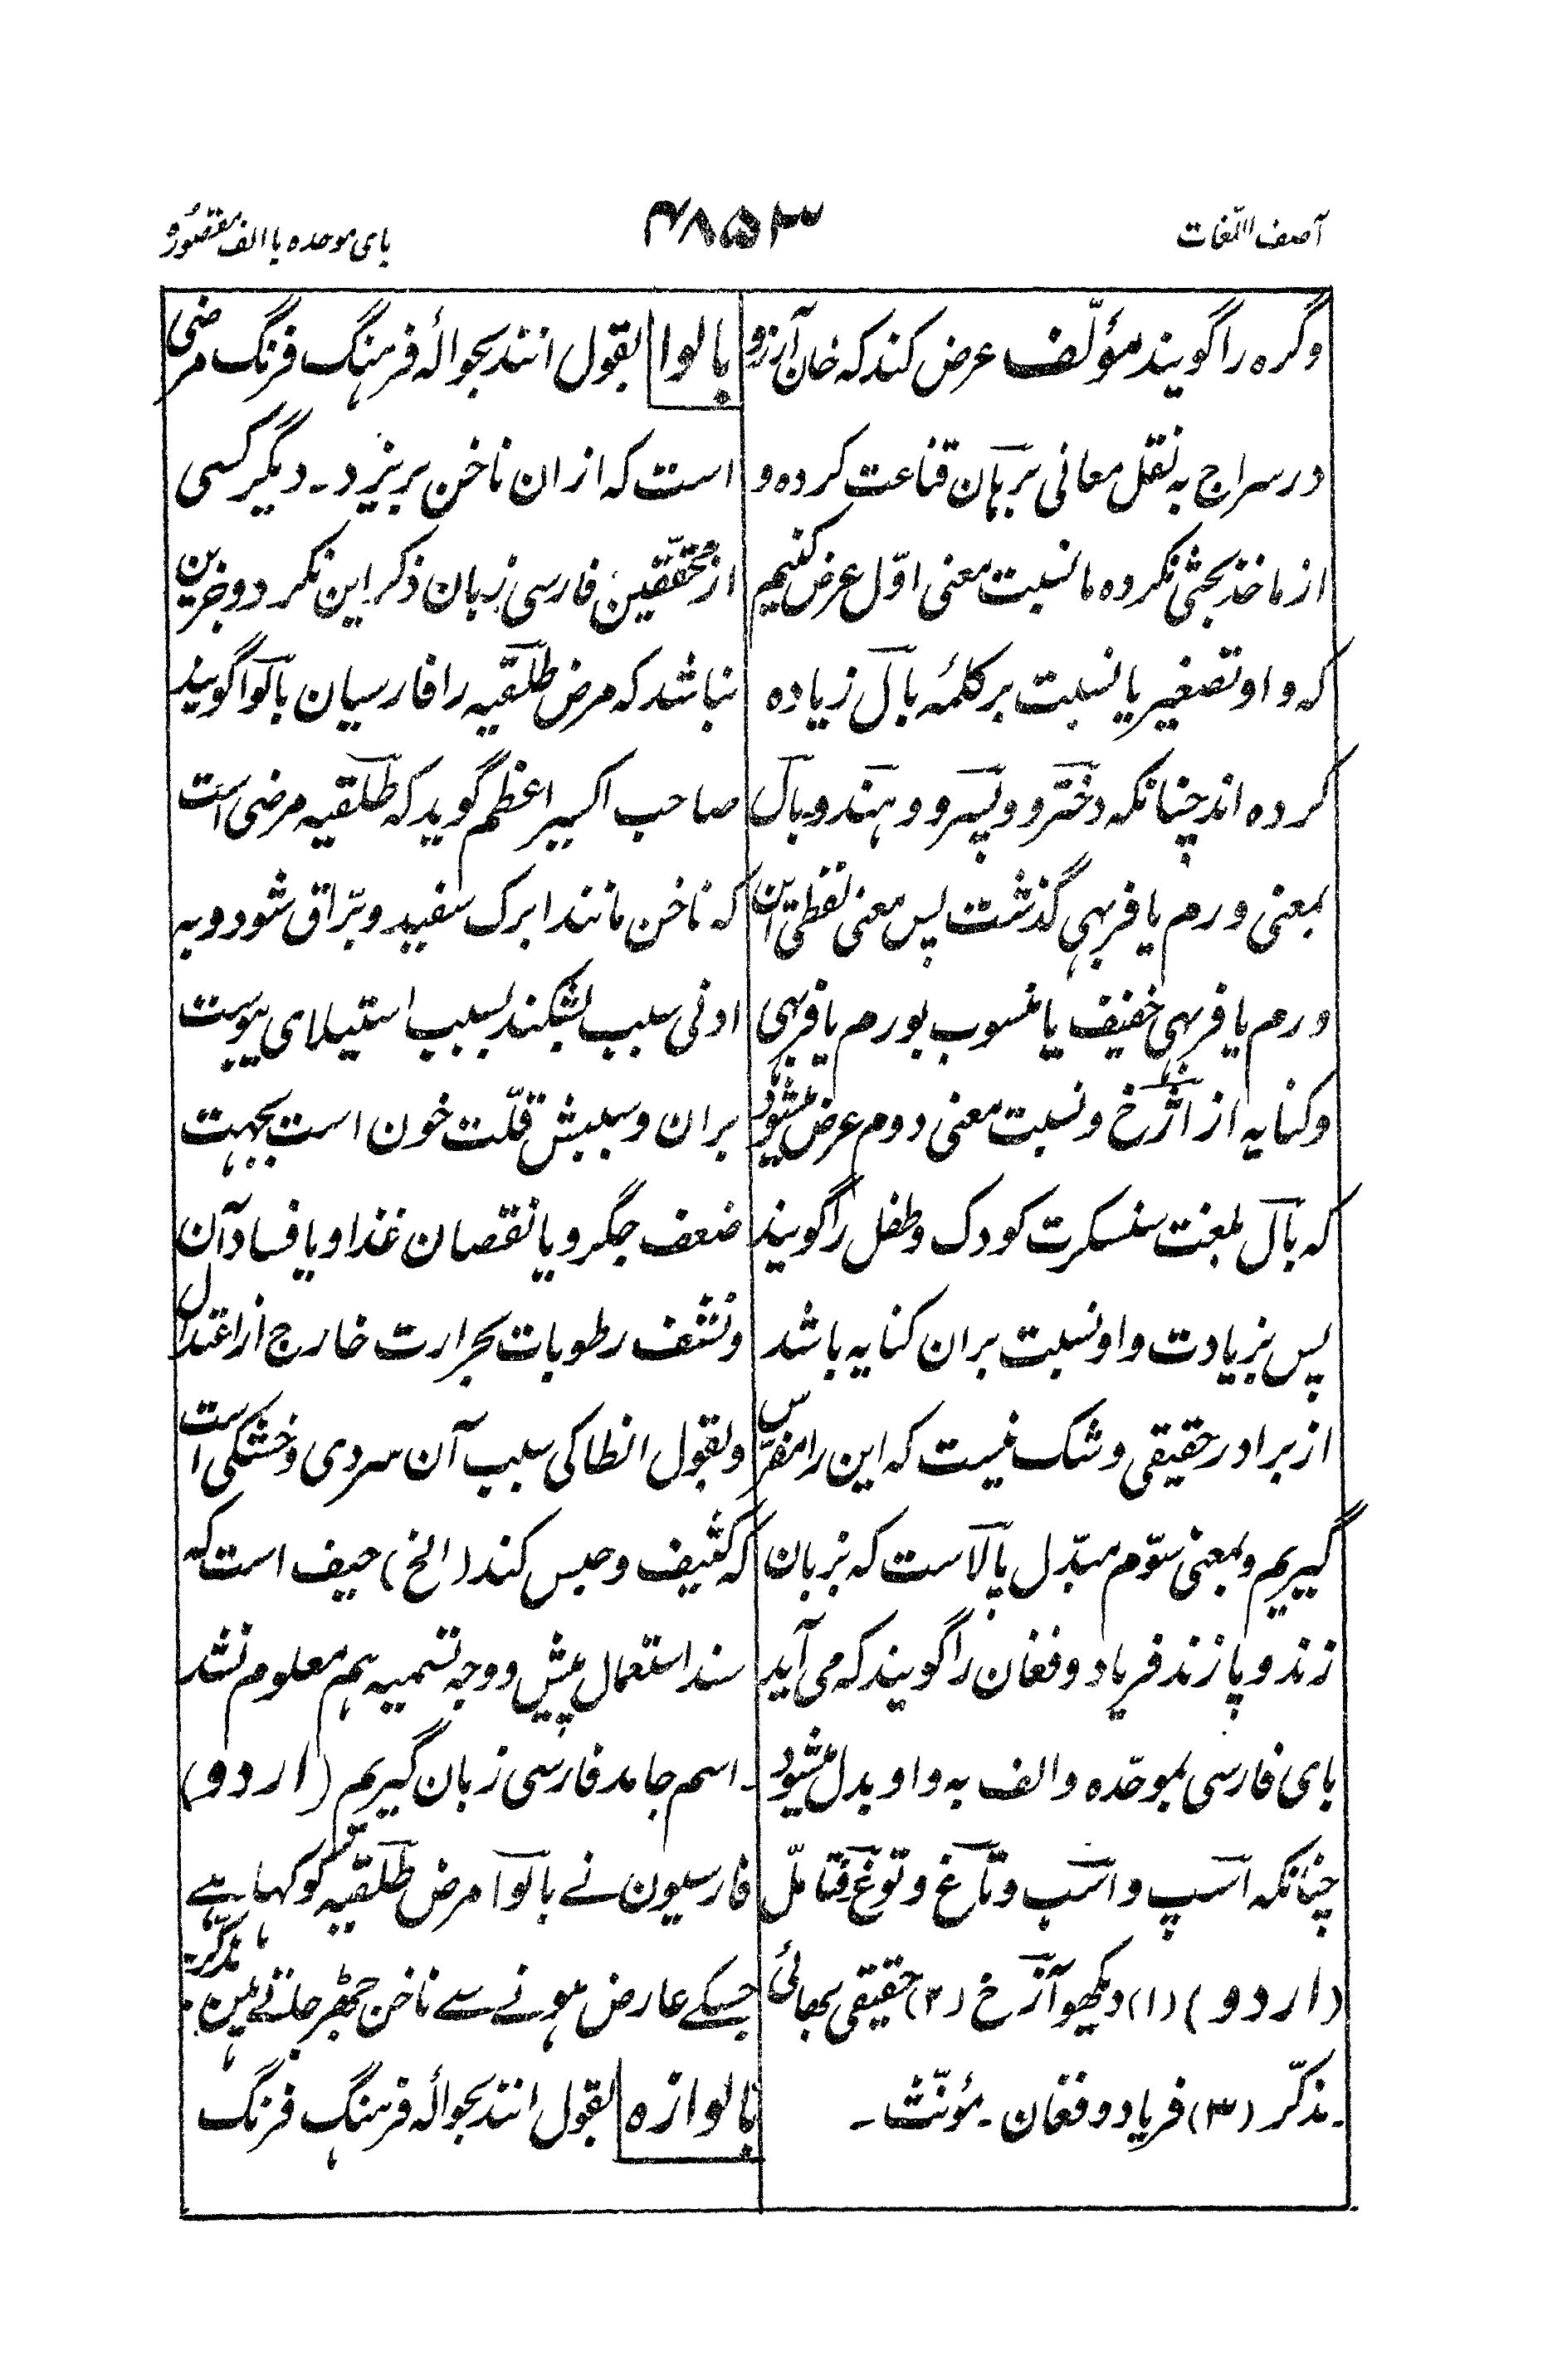 آصف اللّغات
۴۸۵۳
بای موحده با الف مقصوره
وگره را گویند مؤلّف عرض کند که خان آرزو
در سراج به نقل معانی برهان قناعت کرده و
از ماخذ بحثی نکرده ما نسبت معنی اوّل عرض کنیم
که واو تصغیر یا نسبت بر کلمهٔ بال زیاده
کرده اند چنانکه دخترو و پسرو و هندو بال
بمعنی ورم یا فربهی گذشت پس معنی لفظی این
ورم یا فربهی خفیف یا منسوب بورم یا فربهی
وکنایه از اژخ ونسبت معنی دوم عرض میشود
که بال بلغت سنسکرت کودک وطفل را گویند
پس بزیادت واو نسبت بران کنایه باشد
از برادر حقیقی وشک نیست که این را مفرّس
گیریم و بمعنی سوّم مبدّل پالاست که بزبان
زند و پازند فریاد و فغان را گویند که می آید
بای فارسی بموحّده والف به واو بدل میشود
چنانکه اسپ و اسب وتاغ وتوغ فتامّل
(اردو) (۱) دیکھو آژخ (۲) حقیقی بھائی
۔ مذکّر (۳) فریاد و فغان ۔ مؤنّث ۔
بالوا بقول انند بحوالهٔ فرهنگ فرنگ مرضی
است که ازان ناخن بریزد ۔ دیگر کسی
از محقّقین فارسی زبان ذکر این نکرد و جز این
نباشد که مرض طلقیه را فارسیان بالوا گویند
صاحب اکسیر اعظم گوید که طلقیه مرضی است
که ناخن مانند ابرک سفید و برّاق شود و به
ادنی سبب بشکند بسبب استیلای یبوست
بران وسببش قلّت خون است بجهت
ضعف جگر ویا نقصان غذا ویا فساد آن
ونشف رطوبات بحرارت خارج از اعتدال
وبقول انطاکی سبب آن سردی وخشکی است
که کثیف وحبس کند (الخ) حیف است که
سند استعمال پیش و وجه تسمیه هم معلوم نشد
۔ اسم جامد فارسی زبان گیریم (اردو)
فارسیون نے بالوا مرض طلقیّه کو کہا ہے
جسکے عارض ہونے سے ناخن جھڑ جاتے ہین ۔ مذکّر ۔
بالوازه بقول انند بحوالهٔ فرهنگ فرنگ